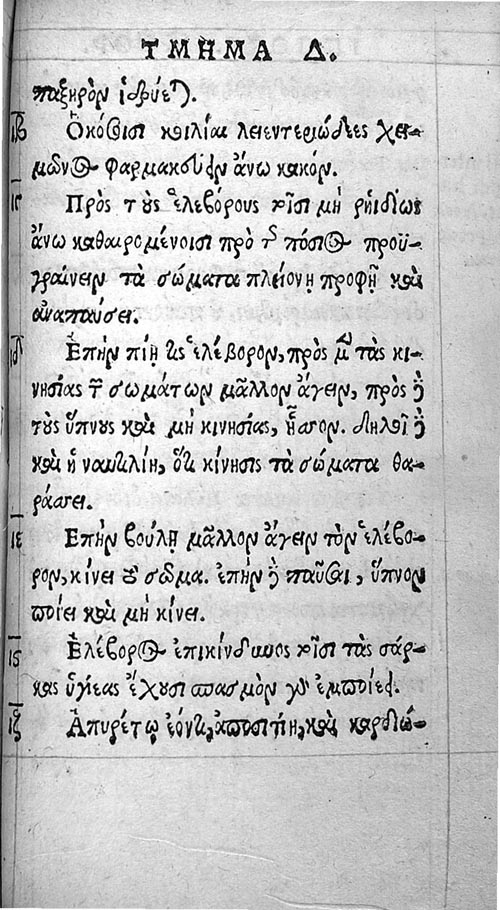 ΤΜΗΜΑ Δ.
παξηρὸν ἱδρύεται.
ιβ Ὁκόσοισι κοιλίαι λειεντεριώδεες χει-
μῶνος φαρμακεύειν ἄνω κακόν.
ιγ Πρὸς τοὺς ἑλεβόρους τοῖσι μὴ ῥηιδίως
ἄνω καθαιρομένοισι πρὸ τῆς πόσιος προϋ-
γραίνειν τὰ σώματα πλείονη τροφῇ καὶ
ἀναπαύσει.
ιδ Ἐπὴν πίῃ τις ἑλέβορον, πρὸς μὲν τὰς κι-
νησίας τῶν σωμάτων μᾶλλον ἄγειν, πρὸς δὲ
τοὺς ὕπνους καὶ μὴ κινησίας, ἧσσον. δηλοῖ δὲ
καὶ ἡ ναυτιλίη, ὅτι κίνησις τὰ σώματα θα-
ράσσει.
ιε Ἐπὴν βούλῃ μᾶλλον ἄγειν τὸν ἑλέβο-
ρον, κίνει τὸ σῶμα. ἐπὴν δὲ παῦσαι, ὕπνον
ποίει καὶ μὴ κίνει.
ις Ἑλέβορος ἐπικίνδυνος τοῖσι τὰς σάρ-
κας ὑγιέας ἔχουσι σπασμὸν γὰρ ἐμποιέει.
ιζ Ἀπυρέτῳ ἐόντι, ἀποσιτίη, καὶ καρδιω-